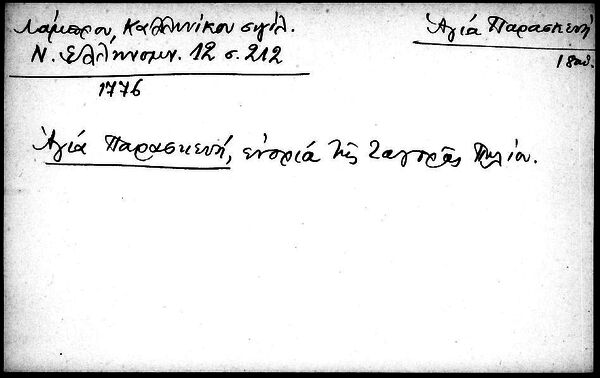 Λάμπρου, Καλλινίκου σιγίλ.
Ν. Ἑλληνομν. 12 σ. 212
1776
Ἁγία Παρασκευή
18 αἰ.
Ἁγία Παρασκευή, ἐνορία τῆς Ζαγορᾶς Πηλίου.